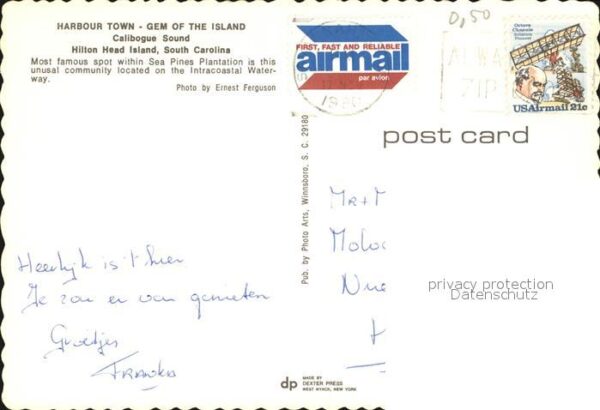 HARBOUR TOWN - GEM OF THE ISLAND
Calibogue Sound
Hilton Head Island, South Carolina
Most famous spot within Sea Pines Plantation is this
unusual community located on the Intracoastal Water-
way.
Photo by Ernest Ferguson
FIRST, FAST AND RELIABLE
airmail
par avion
1980
0,50
ZIP
Octave
Chanute
Aviation
Pioneer
USAirmail 21c
post card
Pub. by Photo Arts, Winnsboro, S. C. 29180
Heerlijk is 't hier
Je zou er van genieten
Groetjes
Franka
Mr+M
Moloc
privacy protection
Datenschutz
dp
MADE BY
DEXTER PRESS
WEST NYACK, NEW YORK